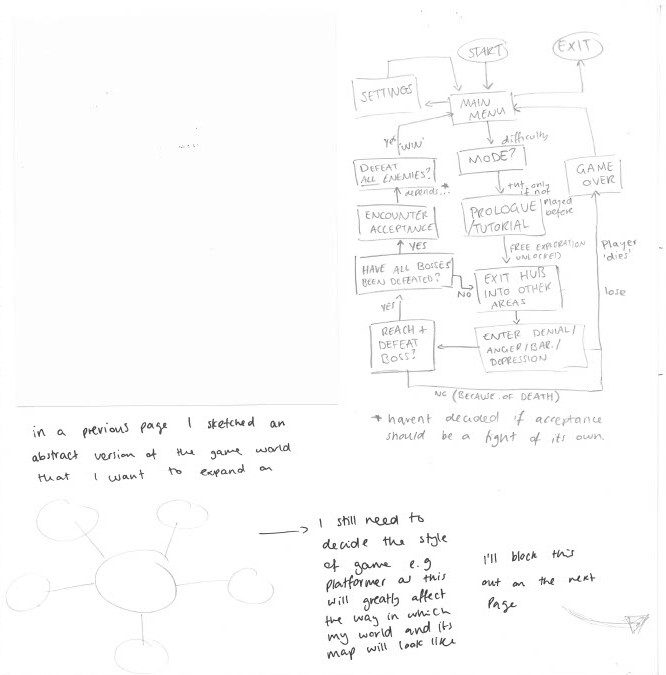 START
EXIT
SETTINGS
MAIN
MENU
yes 'WIN'
difficulty
DEFEAT
ALL ENEMIES?
MODE?
GAME
OVER
depends...*
tut only
if not
played
before
ENCOUNTER
ACCEPTANCE
PROLOGUE
/TUTORIAL
YES
FREE EXPLORATION
UNLOCKED
Player
'dies'
HAVE ALL BOSSES
BEEN DEFEATED?
NO
EXIT HUB
INTO OTHER
AREAS
lose
YES
REACH +
DEFEAT
BOSS?
ENTER DENIAL/
ANGER/BAR./
DEPRESSION
NO (BECAUSE OF DEATH)
* havent decided if acceptance
should be a fight of its own.
in a previous page I sketched an
abstract version of the game world
that I want to expand on
I still need to
decide the style
of game e.g
platformer as this
will greatly affect
the way in which
my world and its
map will look like
I'll block this
out on the next
page